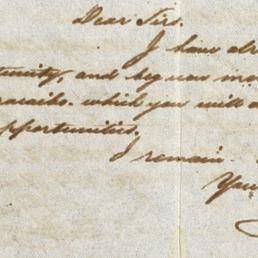 Dear Sirs.
I have alr
tunity, and beg now mo
acaibo. which you will
pportunities.
I remain
You